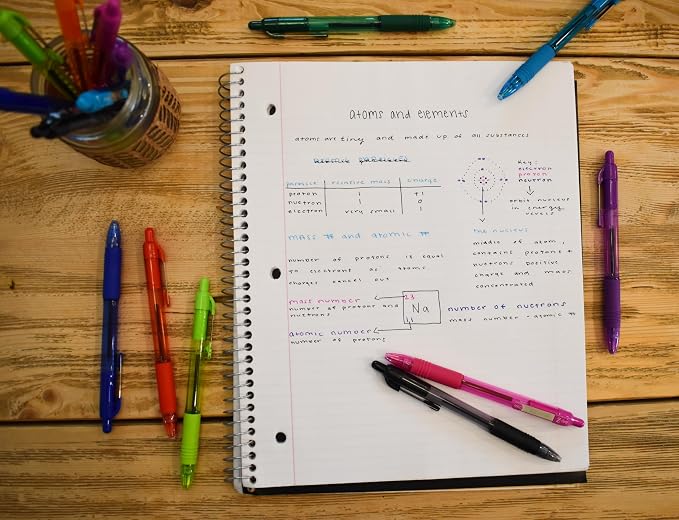 atoms and elements
atoms are tiny and made up of all substances
particle relative mass charge
proton 1 +1
nuetron 1 0
electron very small 1
key:
electron
proton
neutron
orbit nucleus
in energy
levels
mass # and atomic #
number of protons is equal
to electrons as atoms
charges cancel out
the nucleus
middle of atom,
contains protons +
nuetrons positive
charge and mass
concentrated
mass number
number of protons and
nuetrons
23
Na
11
atomic number
number of protons
number of nuetrons
mass number - atomic #